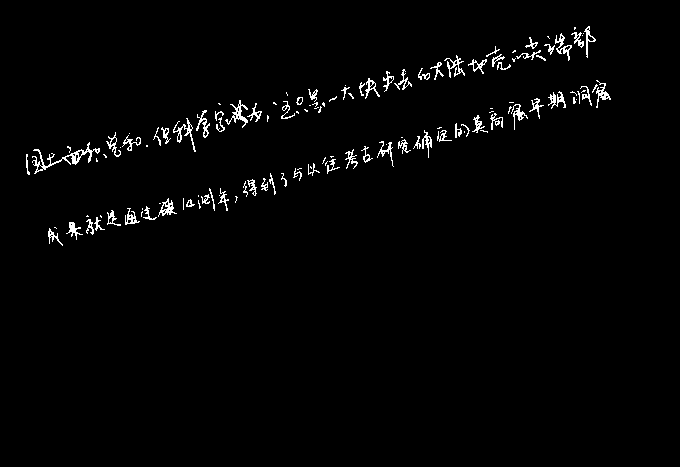 国土面积总和.但科学家认为,这只是一大块失去的大陆地壳的尖端部
成果就是通过碳14测年,得到了与以往考古研究确定的莫高窟早期洞窟